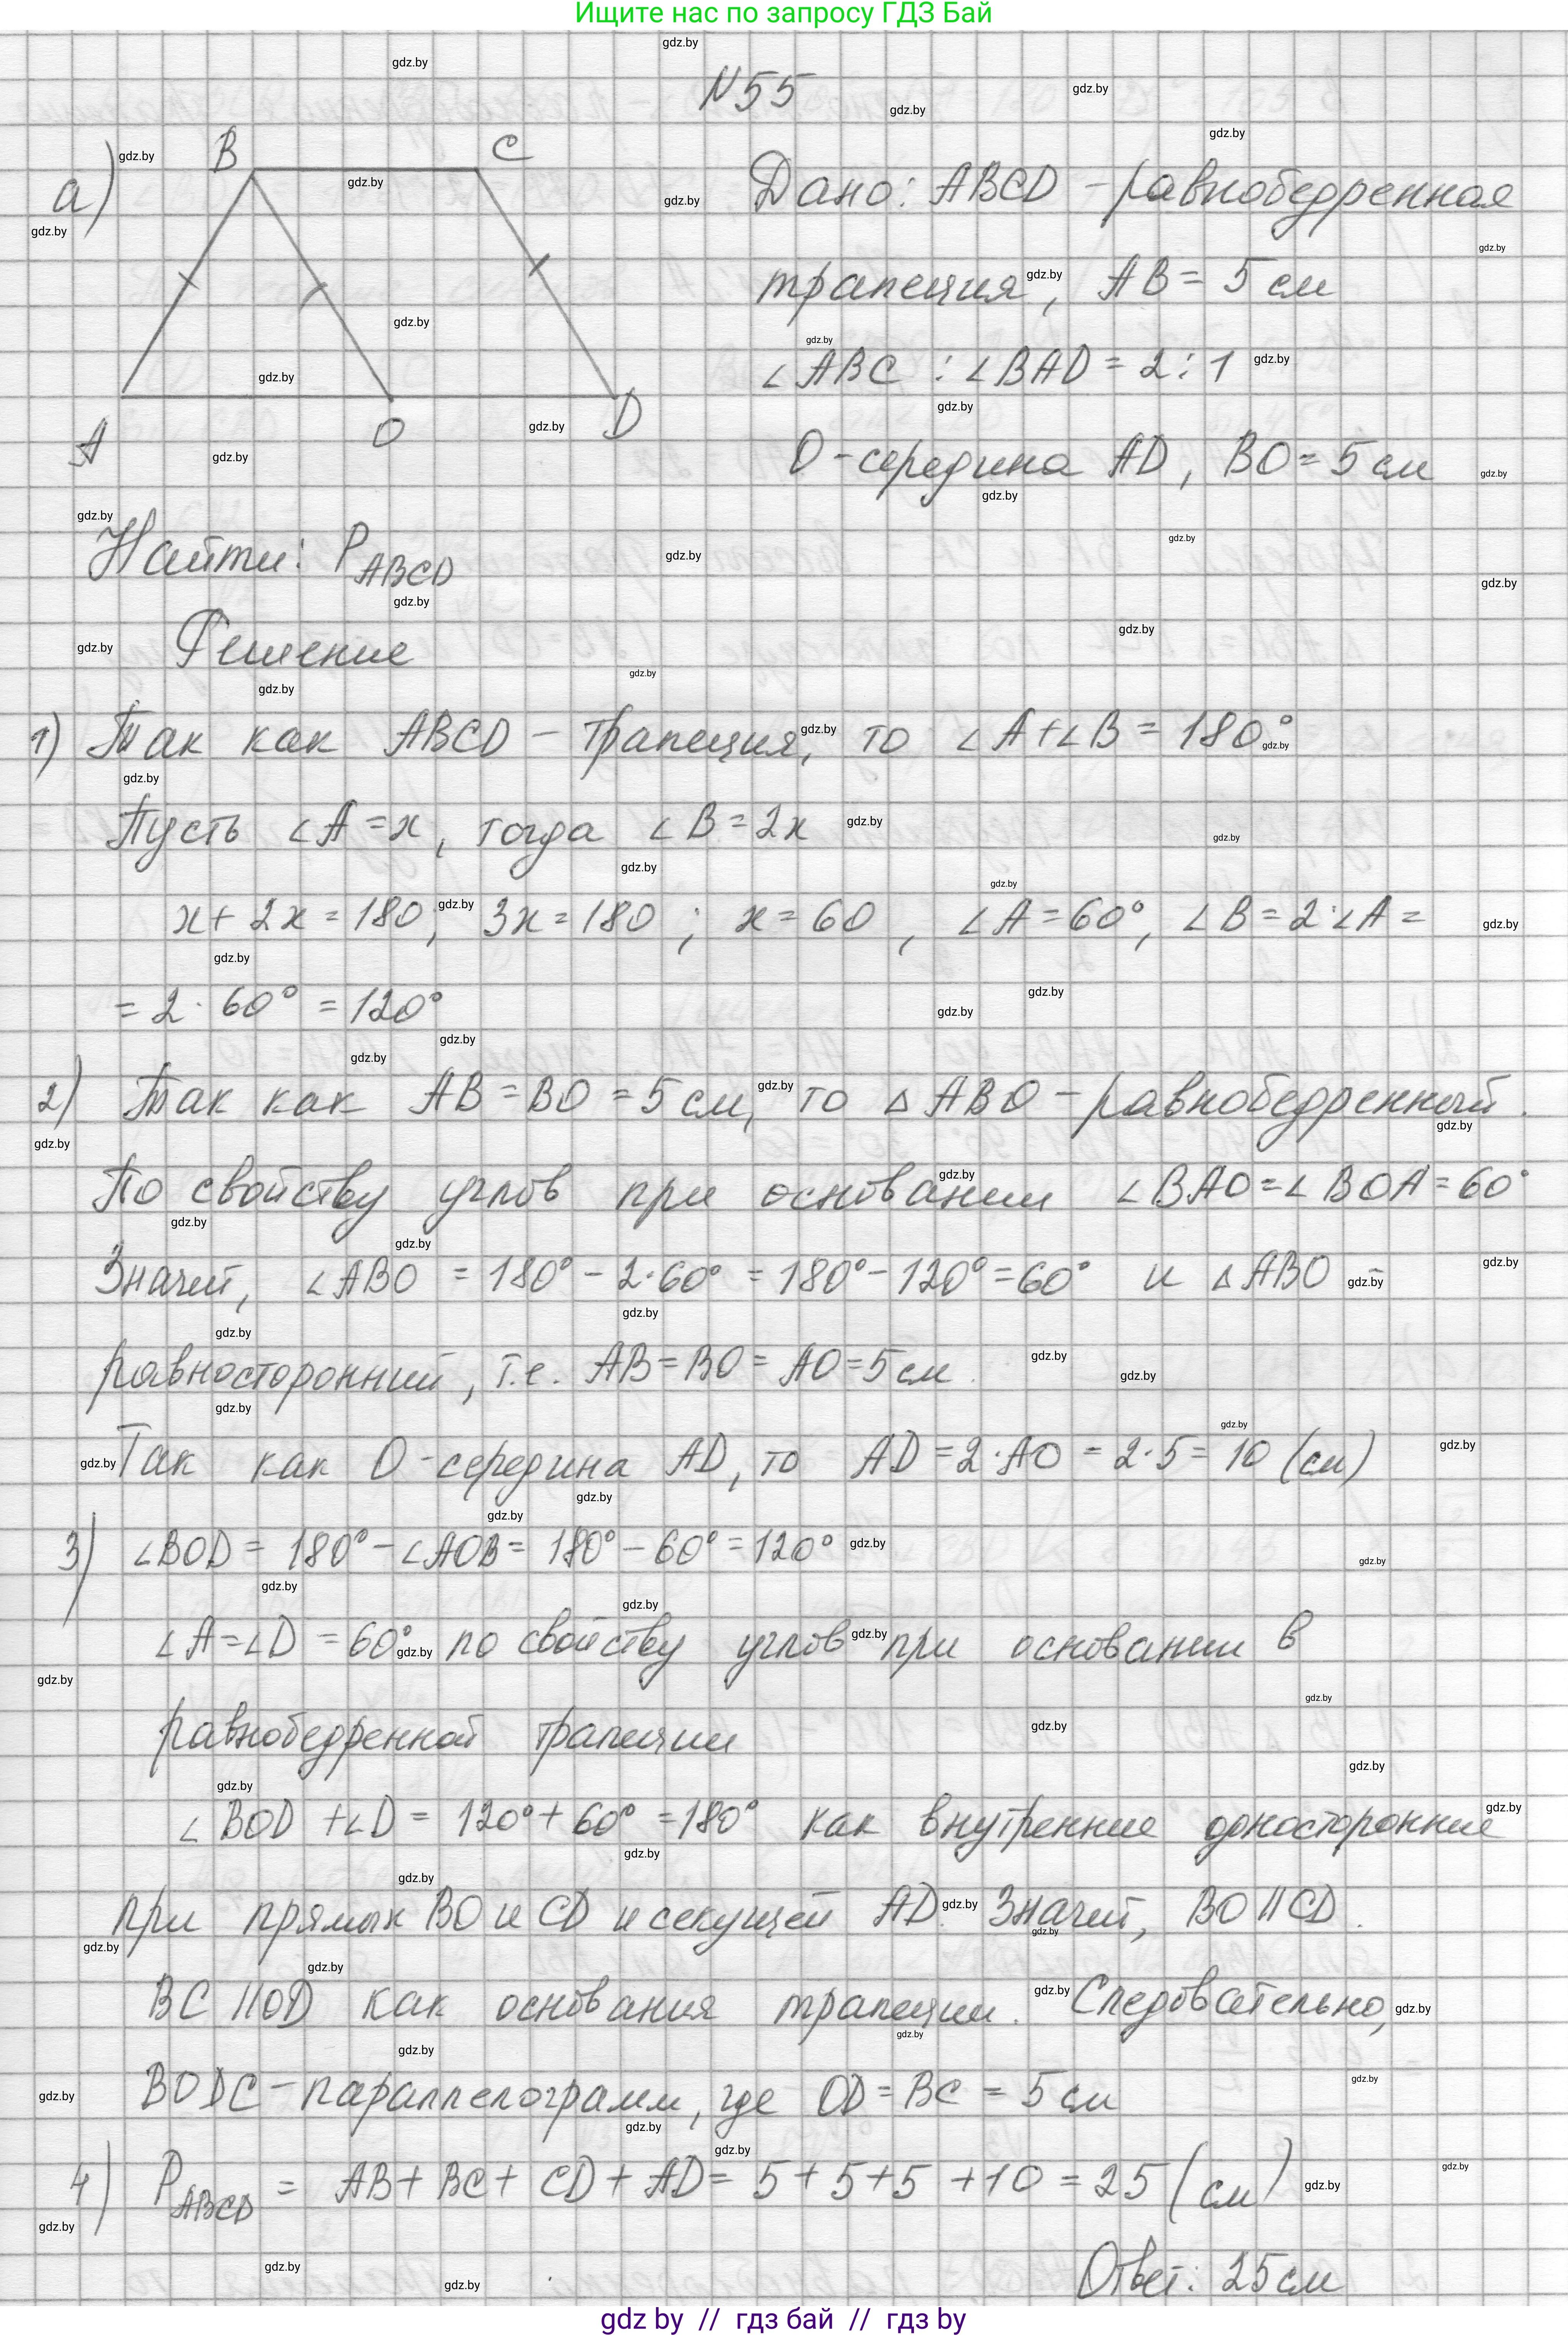 Ищите нас по запросу ГДЗ Бай
N55
а)
B C
A O D
Дано: ABCD - равнобедренная
трапеция, AB = 5 см
∠ABC : ∠BAD = 2 : 1
O - середина AD, BO = 5 см
Найти: P ABCD
Решение
1) Так как ABCD - трапеция, то ∠A + ∠B = 180°
Пусть ∠A = x, тогда ∠B = 2x
x + 2x = 180; 3x = 180; x = 60, ∠A = 60°, ∠B = 2·∠A =
= 2 · 60° = 120°
2) Так как AB = BO = 5 см, то △ABO - равнобедренный.
По свойству углов при основании ∠BAO = ∠BOA = 60°
Значит, ∠ABO = 180° - 2·60° = 180° - 120° = 60° и △ABO -
равносторонний, т.е. AB = BO = AO = 5 см.
Так как O - середина AD, то AD = 2·AO = 2·5 = 10 (см)
3) ∠BOD = 180° - ∠AOB = 180° - 60° = 120°
∠A = ∠D = 60° по свойству углов при основании в
равнобедренной трапеции
∠BOD + ∠D = 120° + 60° = 180° как внутренние односторонние
при прямых BO и CD и секущей AD. Значит, BO || CD.
BC || OD как основания трапеции. Следовательно,
BODC - параллелограмм, где OD = BC = 5 см
4) P ABCD = AB + BC + CD + AD = 5 + 5 + 5 + 10 = 25 (см)
Ответ: 25 см
gdz by // гдз бай // гдз by